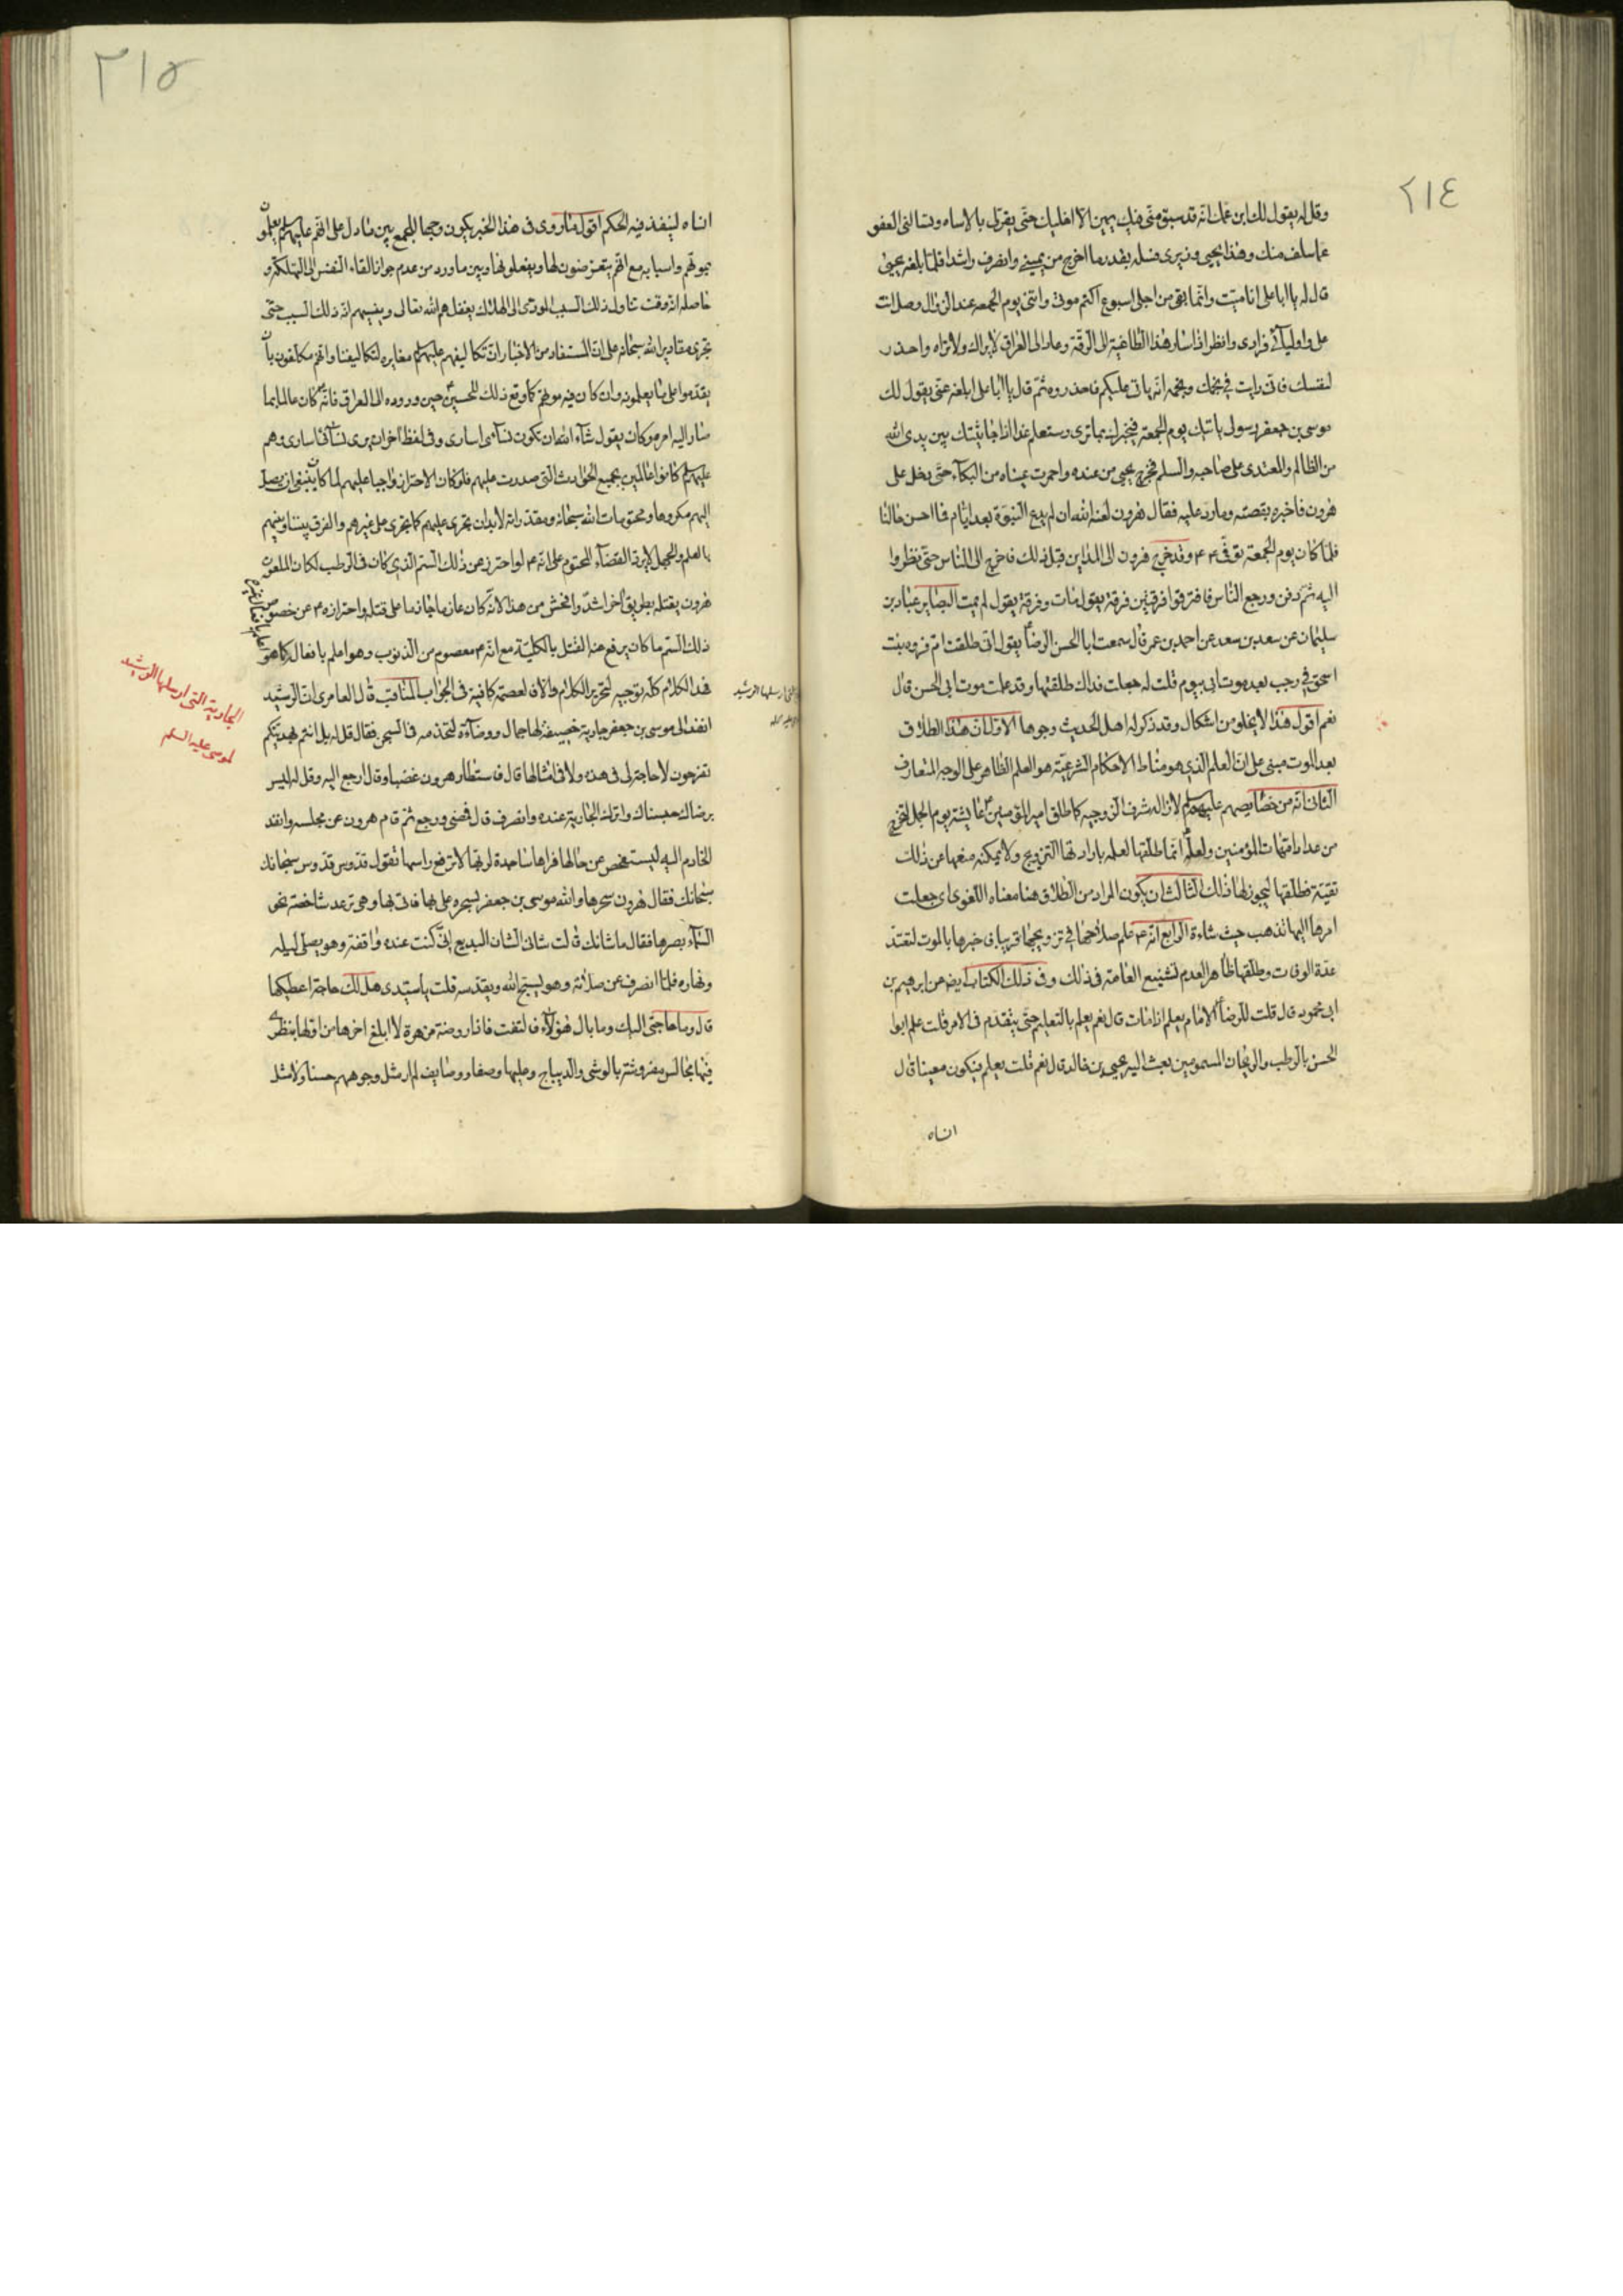 ٢١٤
وقل له يقول لك ابن عمك انه قد سبق مني فيك يمين الا اخليك حتى يقر لي بالاساه وتسالني العفو
عما سلف منك وهذا يحيى وزيري فسله بقدر ما اخرج من يميني وانصرف راشدا فلما بلغه يحيى
قال له يا ابا على انا ميت وانما بقي من اجلي اسبوع اكتم موتي وائتني يوم الجمعه عند الزوال وصل انت
على واوليائي فرادى وانظر اذا سار هذا الطاغية الى الرقة وعاد الى العراق لا يراك ولا تراه واحذر
لنفسك فاني رايت في نجمك ونجمه انه ياتي عليكم فاحذروه ثم قال يا ابا على ابلغه عني يقول لك
موسى بن جعفر رسولي ياتيك يوم الجمعة فيخبرك بما ترى وستعلم غدا اذا جاثيتك بين يدي الله
من الظالم والمعتدي على صاحبه والسلم فخرج يحيى من عنده واحمرت عيناه من البكاء حتى دخل على
هرون فاخبره بقصته وما رد عليه فقال هرون لعنه الله ان لم يدع النبوة بعد ايام فما احسن حالنا
فلما كان يوم الجمعة توفى ع م وقد خرج هرون الى المداين قبل ذلك فاخرج الى الناس حتى نظروا
اليه ثم دفن ورجع الناس فافترقوا فرقتين فرقة يقول مات وفرقة يقول لم يمت البصاير عباد بن
سليمان عن سعد بن سعد عن احمد بن عمر قال سمعت ابا الحسن الرضا يقول اني طلقت ام فروه بنت
اسحق في رجب بعد موت ابي بيوم قلت له جعلت فداك طلقتها وقد علمت موت ابي الحسن قال
نعم اقول هذا لا يخلو من اشكال وقد ذكر له اهل الحديث وجوها الاول ان هذا الطلاق
بعد الموت مبنى على ان العلم الذي هو مناط الاحكام الشرعية هو العلم الظاهر على الوجه المتعارف
الثاني انه من خصايصهم عليهم السلم لازاله شرف الزوجيه كما طلق امير المؤمنين عايشة يوم الجمل لتخرج
من عداد امهات المؤمنين ولعله انما طلقها لعلمه بارادتها التزويج ولا يمكنه منعها عن ذلك
تقية فطلقها ليجوز لها ذلك الثالث ان يكون المراد من الطلاق هنا معناه اللغوى اى جعلت
امرها اليها تذهب حيث شاءة الرابع انه ع م علم صلاحها في تزويجها قريبا فاخبرها بالموت لتعتد
عدة الوفات وطلقها ظاهرا لعدم تشنيع العامة في ذلك وفي ذلك الكتاب ايضا عن ابرهيم بن
ابي محمود قال قلت للرضا الامام يعلم اذا مات قال نعم يعلم بالتعليم حتى يتقدم في الامر قلت علم ابو
الحسن بالرطب والريحان المسمومين بعث اليه يحيى بن خالد قال نعم قلت يعلم فيكون معينا قال
انساه
٢١٥
انساه لينفذ فيه الحكم اقول ما روى في هذا الخبر يكون وجها للجمع بين ما دل على انهم عليهم السلم يعلمون
بموتهم واسبابه مع انهم يتعرضون لها ويفعلونها وبين ما ورد من عدم جواز القاء النفس الى التهلكة و
حاصله انه وقت تناول ذلك السبب المودى الى الهلاك يغفلهم الله تعالى وينسيهم انه ذلك السبب حتى
تجرى مقادير الله سبحانه على ان المستفاد من الاخبار ان تكاليفهم عليهم السلم مغايره لتكاليفنا وانهم مكلفون بان
يقدموا على ما يعلمونه وان كان فيه موتهم كما وقع ذلك للحسين حين وروده الى العراق فانه كان عالما بما
صار اليه امره وكان يقول شاء الله ان تكون نسآءى اسارى وفي لفظ آخر ان يرى نسائى اسارى وهم
عليهم السلم كانوا عالمين بجميع الحوادث التي صدرت عليهم فلو كان الاحتراز واجبا عليهم لما كان ينبغي ان يصل
اليهم مكروها ومحتومات الله سبحانه ومقدراته لابد ان تجرى عليهم كما يجرى على غيرهم والفرق بيننا وبينهم
بالعلم والجهل لا يرد القضاء المحتوم على انه ع م لو احترز عن ذلك السم الذي كان في الرطب لكان الملعون
هرون يقتله بطريق آخر اشد وافحش من هذا لانه كان عازما جازما على قتله واحترازه ع م عن خصوص
ذلك السم ما كان يرفع عنه القتل بالكلية مع انه ع م معصوم من الذنوب وهو اعلم بافعاله كما هو
هذا الكلام كله توجيه لتحرير الكلام والا فالعصمة كافية في الجواب المناقب قال العامرى ان الرشيد
انفذ الى موسى بن جعفر جارية خصيفة لها جمال ووضاءة لتخدمه في السجن فقال قل له بل انتم بهديتكم
تفرحون لا حاجة لى في هذه ولا في امثالها قال فاستطار هرون غضبا وقال ارجع اليه وقل له ليس
برضاك حبسناك واترك الجارية عنده وانصرف قال فمضى ورجع ثم قام هرون عن مجلسه وانفذ
الخادم اليه ليستفحص عن حالها فراها ساجدة لربها لا ترفع راسها تقول قدوس قدوس سبحانك
سبحانك فقال هرون سحرها والله موسى بن جعفر بسحره على بها فاتى بها وهى ترعد شاخصة نحو
السماء بصرها فقال ما شانك قالت شانى الشان البديع انى كنت عنده واقفة وهو يصلى ليله
ونهاره فلما انصرف عن صلاته وهو يسبح الله ويقدسه قلت يا سيدى هل لك حاجة اعطيكها
قال وما حاجتى اليك وما بال هؤلاء فالتفت فاذا روضة مزهرة لا ابلغ آخرها من اولها بنظرى
فيها مجالس مفروشة بالوشى والديباج وعليها وصفاء ووصايف لم ار مثل وجوههم حسنا ولا مثل
الجارية التي ارسلها الرشيد
لموسى عليه السلم